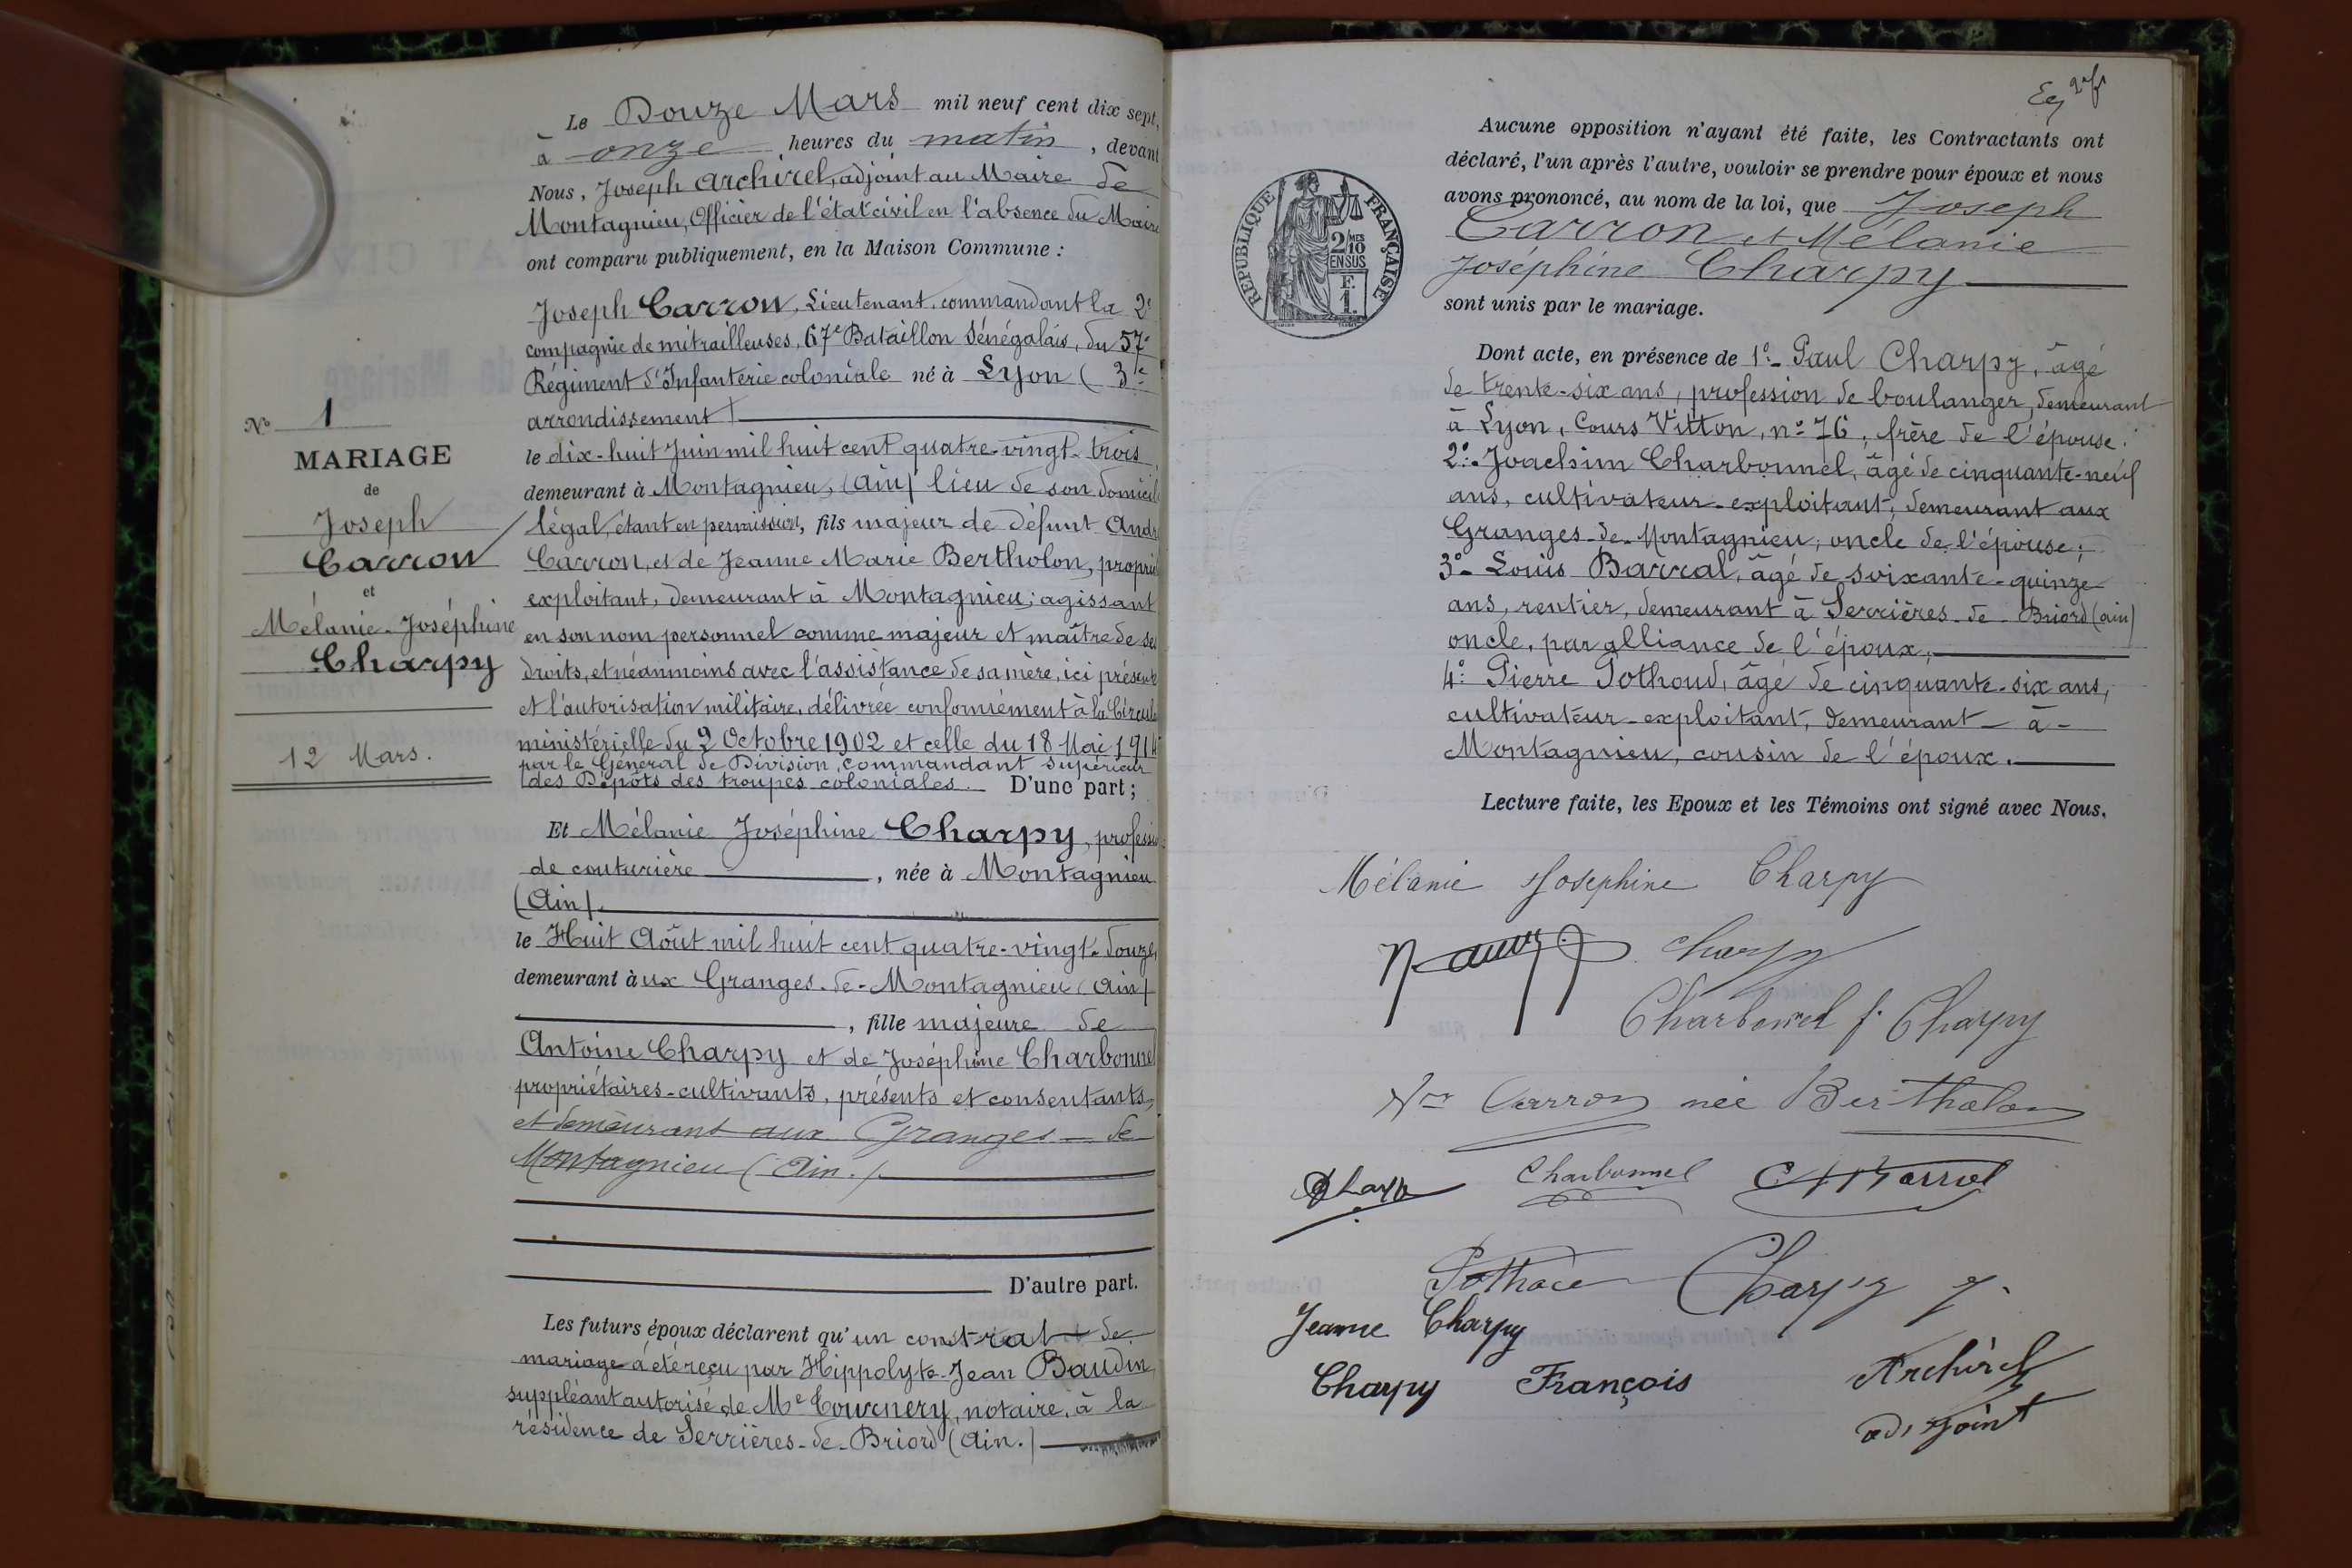 Le Douze Mars mil neuf cent dix sept,
à onze heures du matin, devant
Nous, Joseph Archirel, adjoint au Maire de
Montagnieu, Officier de l'état civil en l'absence du Maire
ont comparu publiquement, en la Maison Commune :
Joseph Carron, Lieutenant, commandant la 2e
compagnie de mitrailleuses, 67e Bataillon Sénégalais, du 57e
Régiment d'Infanterie coloniale né à Lyon (3e
arrondissement)
le dix-huit Juin mil huit cent quatre-vingt-trois
demeurant à Montagnieu, (Ain) lieu de son domicil
légal, étant en permission, fils majeur de défunt Andr
Carron, et de Jeanne Marie Bertholon, proprié
exploitant, demeurant à Montagnieu; agissant
en son nom personnel comme majeur et maître de se
droits, et néanmoins avec l'assistance de sa mère, ici présente
et l'autorisation militaire, délivrée conformément à la Circula
ministérielle du 9 Octobre 1902 et celle du 18 Mai 1914
par le Général de Division, commandant supérieur
des Dépôts des troupes coloniales. D'une part;
Et Mélanie Joséphine Charpy, professio
de couturière, née à Montagnieu
(Ain).
le Huit Août mil huit cent quatre-vingt-douze,
demeurant àux Granges-de-Montagnieu (Ain)
, fille majeure de
Antoine Charpy et de Joséphine Charbonnel
propriétaires-cultivants, présents et consentants,
et demeurant aux Granges-de
Montagnieu (Ain.)
D'autre part.
Les futurs époux déclarent qu'un contrat de
mariage a été reçu par Hippolyte-Jean Baudin
suppléant autorisé de Me Cournery, notaire, à la
résidence de Serrières-de-Briord (Ain.)
No 1
MARIAGE
de
Joseph
Carron
et
Mélanie-Joséphine
Charpy
12 Mars.
Aucune opposition n'ayant été faite, les Contractants ont
déclaré, l'un après l'autre, vouloir se prendre pour époux et nous
avons prononcé, au nom de la loi, que Joseph
Carron et Mélanie
Joséphine Charpy
sont unis par le mariage.
REPUBLIQUE FRANÇAISE
2/MES
10
EN SUS
F.
1.
Dont acte, en présence de 1º- Paul Charpy, âgé
de trente-six ans, profession de boulanger, demeurant
à Lyon, Cours Vitton, nº 76, frère de l'épouse.
2º- Joachim Charbonnel, âgé de cinquante-neuf
ans, cultivateur-exploitant, demeurant aux
Granges-de-Montagnieu, oncle de l'épouse;
3º- Louis Barral, âgé de soixante-quinze
ans, rentier, demeurant à Serrières-de-Briord (Ain)
oncle, par alliance de l'époux,
4º- Pierre Pothoud, âgé de cinquante-six ans,
cultivateur-exploitant, demeurant à
Montagnieu, cousin de l'époux.
Lecture faite, les Epoux et les Témoins ont signé avec Nous.
Mélanie Josephine Charpy
Charpy
Charbonnel f. Charpy
Carron née Bertholon
Charbonnel
Charpy J.
Jeanne Charpy
Charpy François
Archirel
adjoint